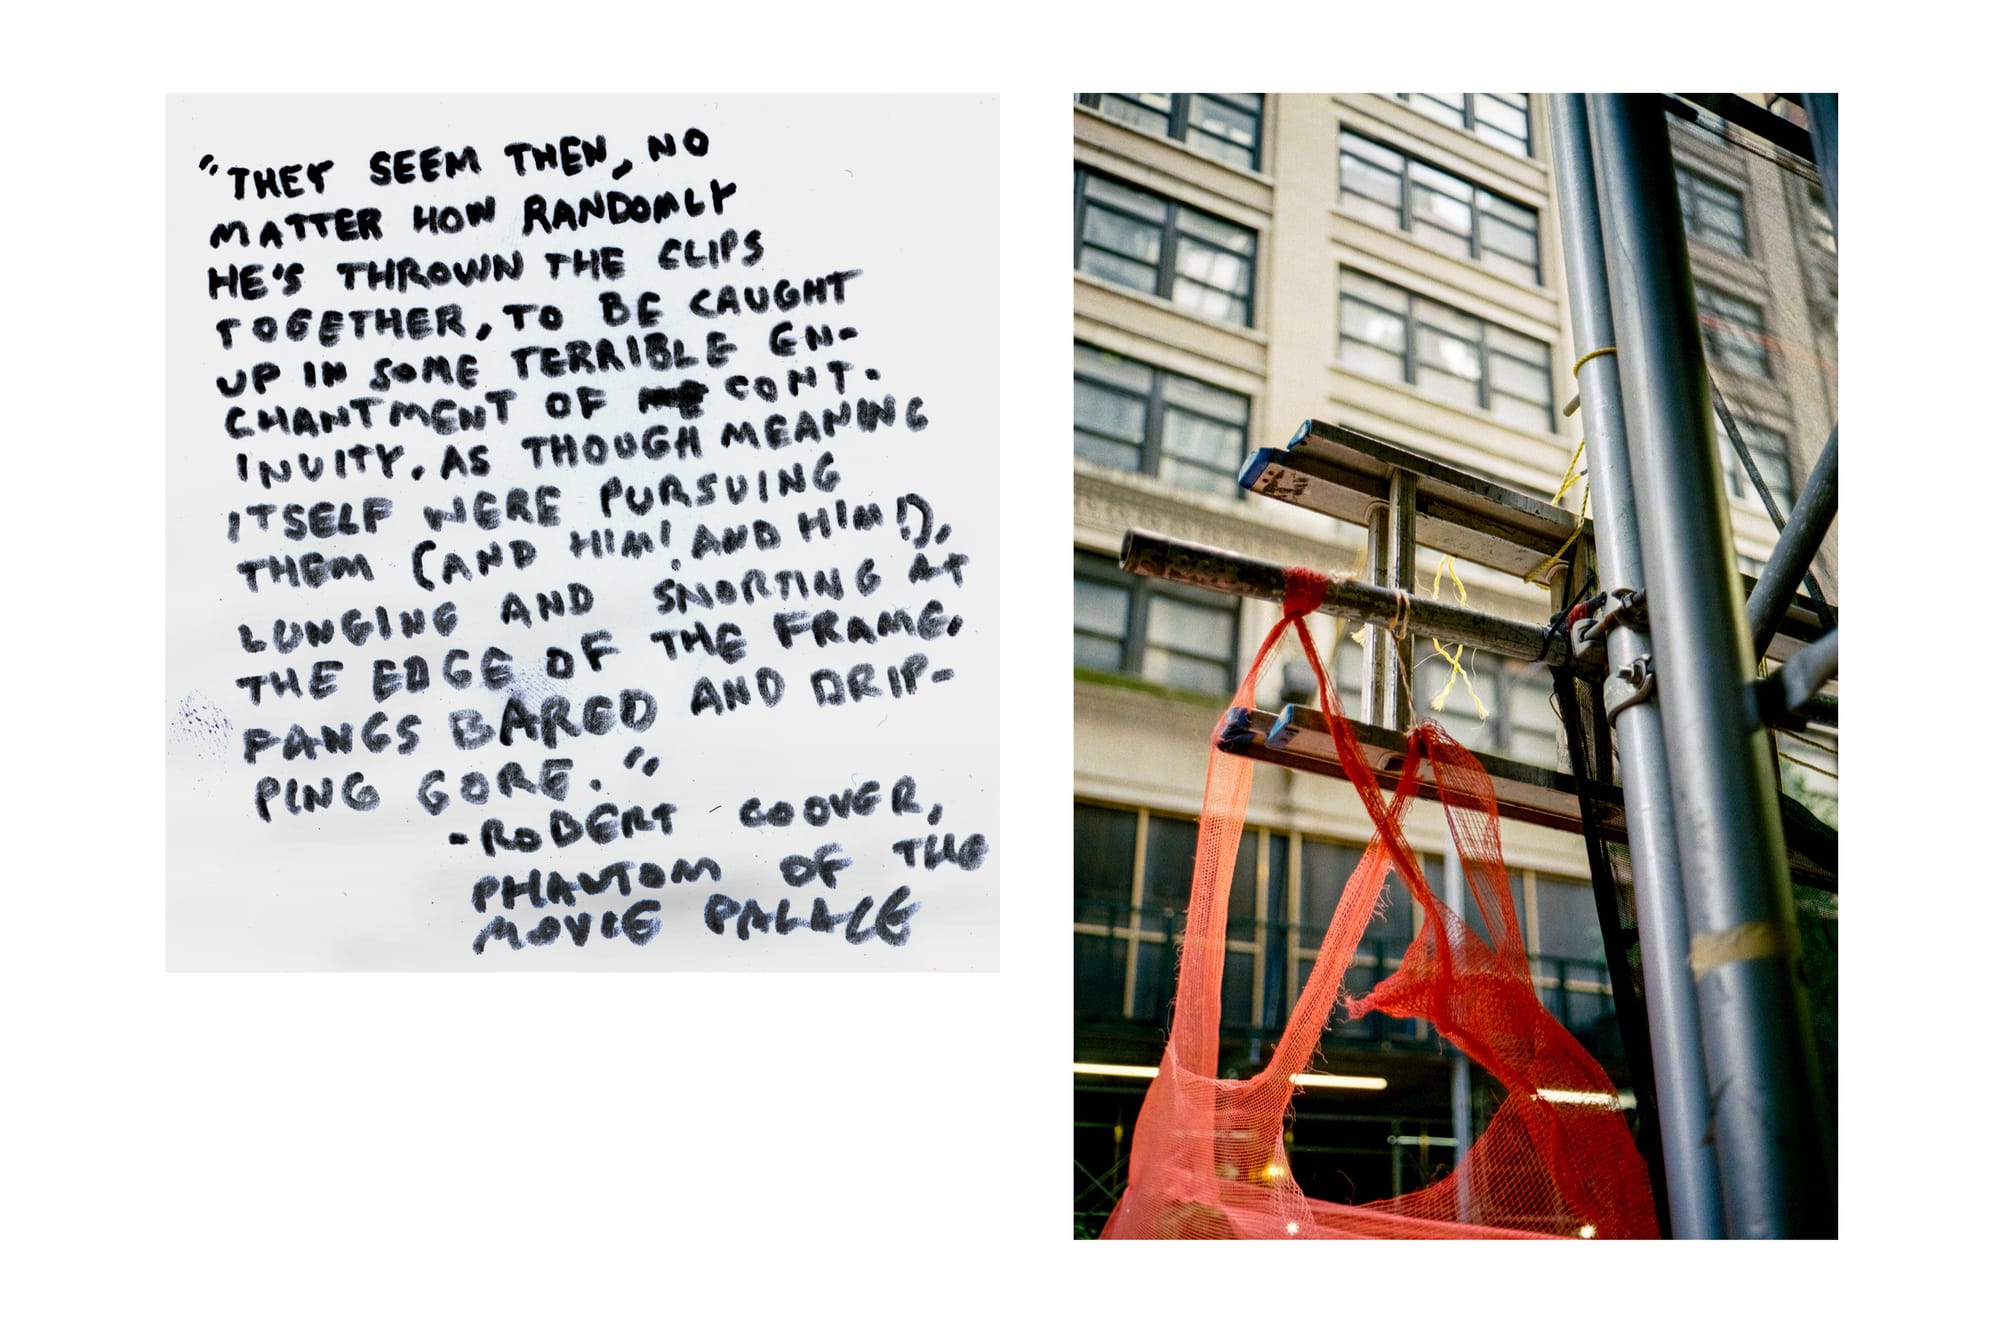 "THEY SEEM THEN, NO
MATTER HOW RANDOMLY
HE'S THROWN THE CLIPS
TOGETHER, TO BE CAUGHT
UP IN SOME TERRIBLE EN-
CHANTMENT OF CONT-
INUITY, AS THOUGH MEANING
ITSELF WERE PURSUING
THEM (AND HIM! AND HIM!),
LUNGING AND SNORTING AT
THE EDGE OF THE FRAME,
FANGS BARED AND DRIP-
PING GORE."
-ROBERT COOVER,
PHANTOM OF THE
MOVIE PALACE